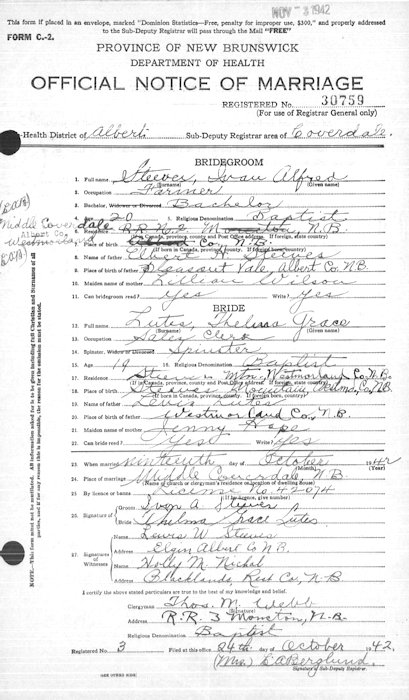 NOV 3 1942
This form if placed in an envelope, marked "Dominion Statistics—Free, penalty for improper use, $300," and properly addressed
to the Sub-Deputy Registrar will pass through the Mail "FREE"
FORM C.-2.
PROVINCE OF NEW BRUNSWICK
DEPARTMENT OF HEALTH
OFFICIAL NOTICE OF MARRIAGE
REGISTERED No. 30759
(For use of Registrar General only)
Health District of Albert Sub-Deputy Registrar area of Coverdale
BRIDEGROOM
1. Full name Steeves, Ivan Alfred
(Surname) (Given name)
2. Occupation Farmer
3. Bachelor, Widower or Divorced Bachelor
4. Age 20 5. Religious Denomination Baptist
Middle Coverdale
Albert Co.
Westmorland
6. Residence R.R. No 2 Moncton, N.B.
(If in Canada, province, county and Post Office address. If foreign, state country)
Co., N.B.
(If in Canada, province, county and place. If foreign born, state country)
8. Name of father Albert H Steeves
9. Place of birth of father Pleasant Vale, Albert Co. N.B.
10. Maiden name of mother Lillian Wilson
11. Can bridegroom read? Yes Write? Yes
BRIDE
12. Full name Lutes, Thelma Grace
(Surname) (Given name)
13. Occupation Sales Clerk
14. Spinster, Widow or Divorced Spinster
15. Age 19 16. Religious Denomination Baptist
17. Residence Mtn, Westmorland Co. N.B.
(If in Canada, province, county and Post Office address. If foreign, state country)
18. Place of birth Steeves Mountain, Westm. Co, N.B.
19. Name of father Lewis Lutes
20. Place of birth of father Westmorland Co., N.B.
21. Maiden name of mother Jenny Hope
22. Can bride read? Yes Write? Yes
23. When married nineteenth day of October 1942
(Month)
24. Place of marriage Middle Coverdale N.B.
(Name of church or clergyman's residence or location of dwelling house)
25. By licence or banns License No 42074
(If by licence, give number)
26. Signature of Ivan A Steeves
Thelma Grace Lutes
27. Signature of Witnesses Lewis W. Steeves
Address Elgin Albert Co N.B.
Holly M. Nickel
Address Blacklands, Rest Co, N-B
I certify the above stated particulars are true to the best of my knowledge and belief.
Clergyman Thos. M. Webb
Address R.R. 3 Moncton, N.B.
Religious Denomination Baptist
Registered No. 3 Filed at this office 24th day of October 1942.
(Mrs) E A Berglund
Signature of Sub-Deputy Registrar.
(SEE OTHER SIDE)
NOTE.—All information asked for to be given including full Christian and Surnames of all parties, and if any of this information is impossible, the reason for the omission must be stated.